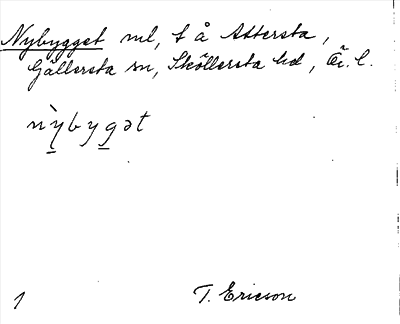 Nybygget ml, t å Attersta,
Gällersta sn, Sköllersta hd, Är. l.
nỳbygət
1 T. Ericson